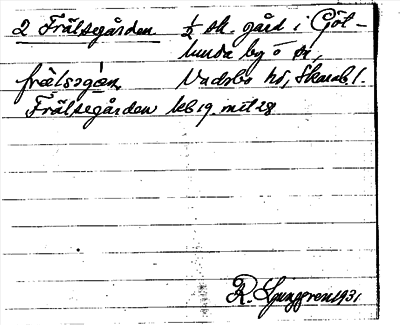 2 Frälsegården ½ sk. gård i Göt-
lunda by o sn,
frälsəgɑ̊ɳ Vadsbo hd, Skarab. l.
Frälsegården leb 19. mtl 28
R. Ljunggren 1931